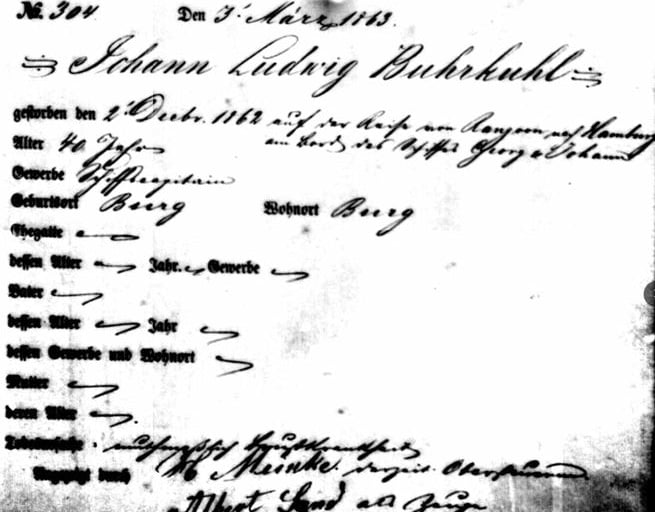 No. 304. Den 3. März 1863.
Johann Ludwig Buhrkuhl
gestorben den 2. Decbr. 1862 auf der Reise von Rangoon nach Hamburg
am Bord des Schiffes Georg & Johann
Alter 40 Jahr
Gewerbe Schiffscapitain
Geburtsort Burg Wohnort Burg
Ehegatte
dessen Alter Jahr. Gewerbe
Vater
dessen Alter Jahr
dessen Gewerbe und Wohnort
Mutter
deren Alter
Todesursache: muthmaßlich Brustkrankheit
Angezeigt durch Meinke. derzeit Obersteuerm.
Albert Sand als Zeuge